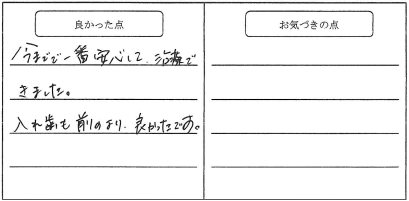 良かった点
お気づきの点
今までで一番安心して、治療で
きました。
入れ歯も前のより、良かったです。